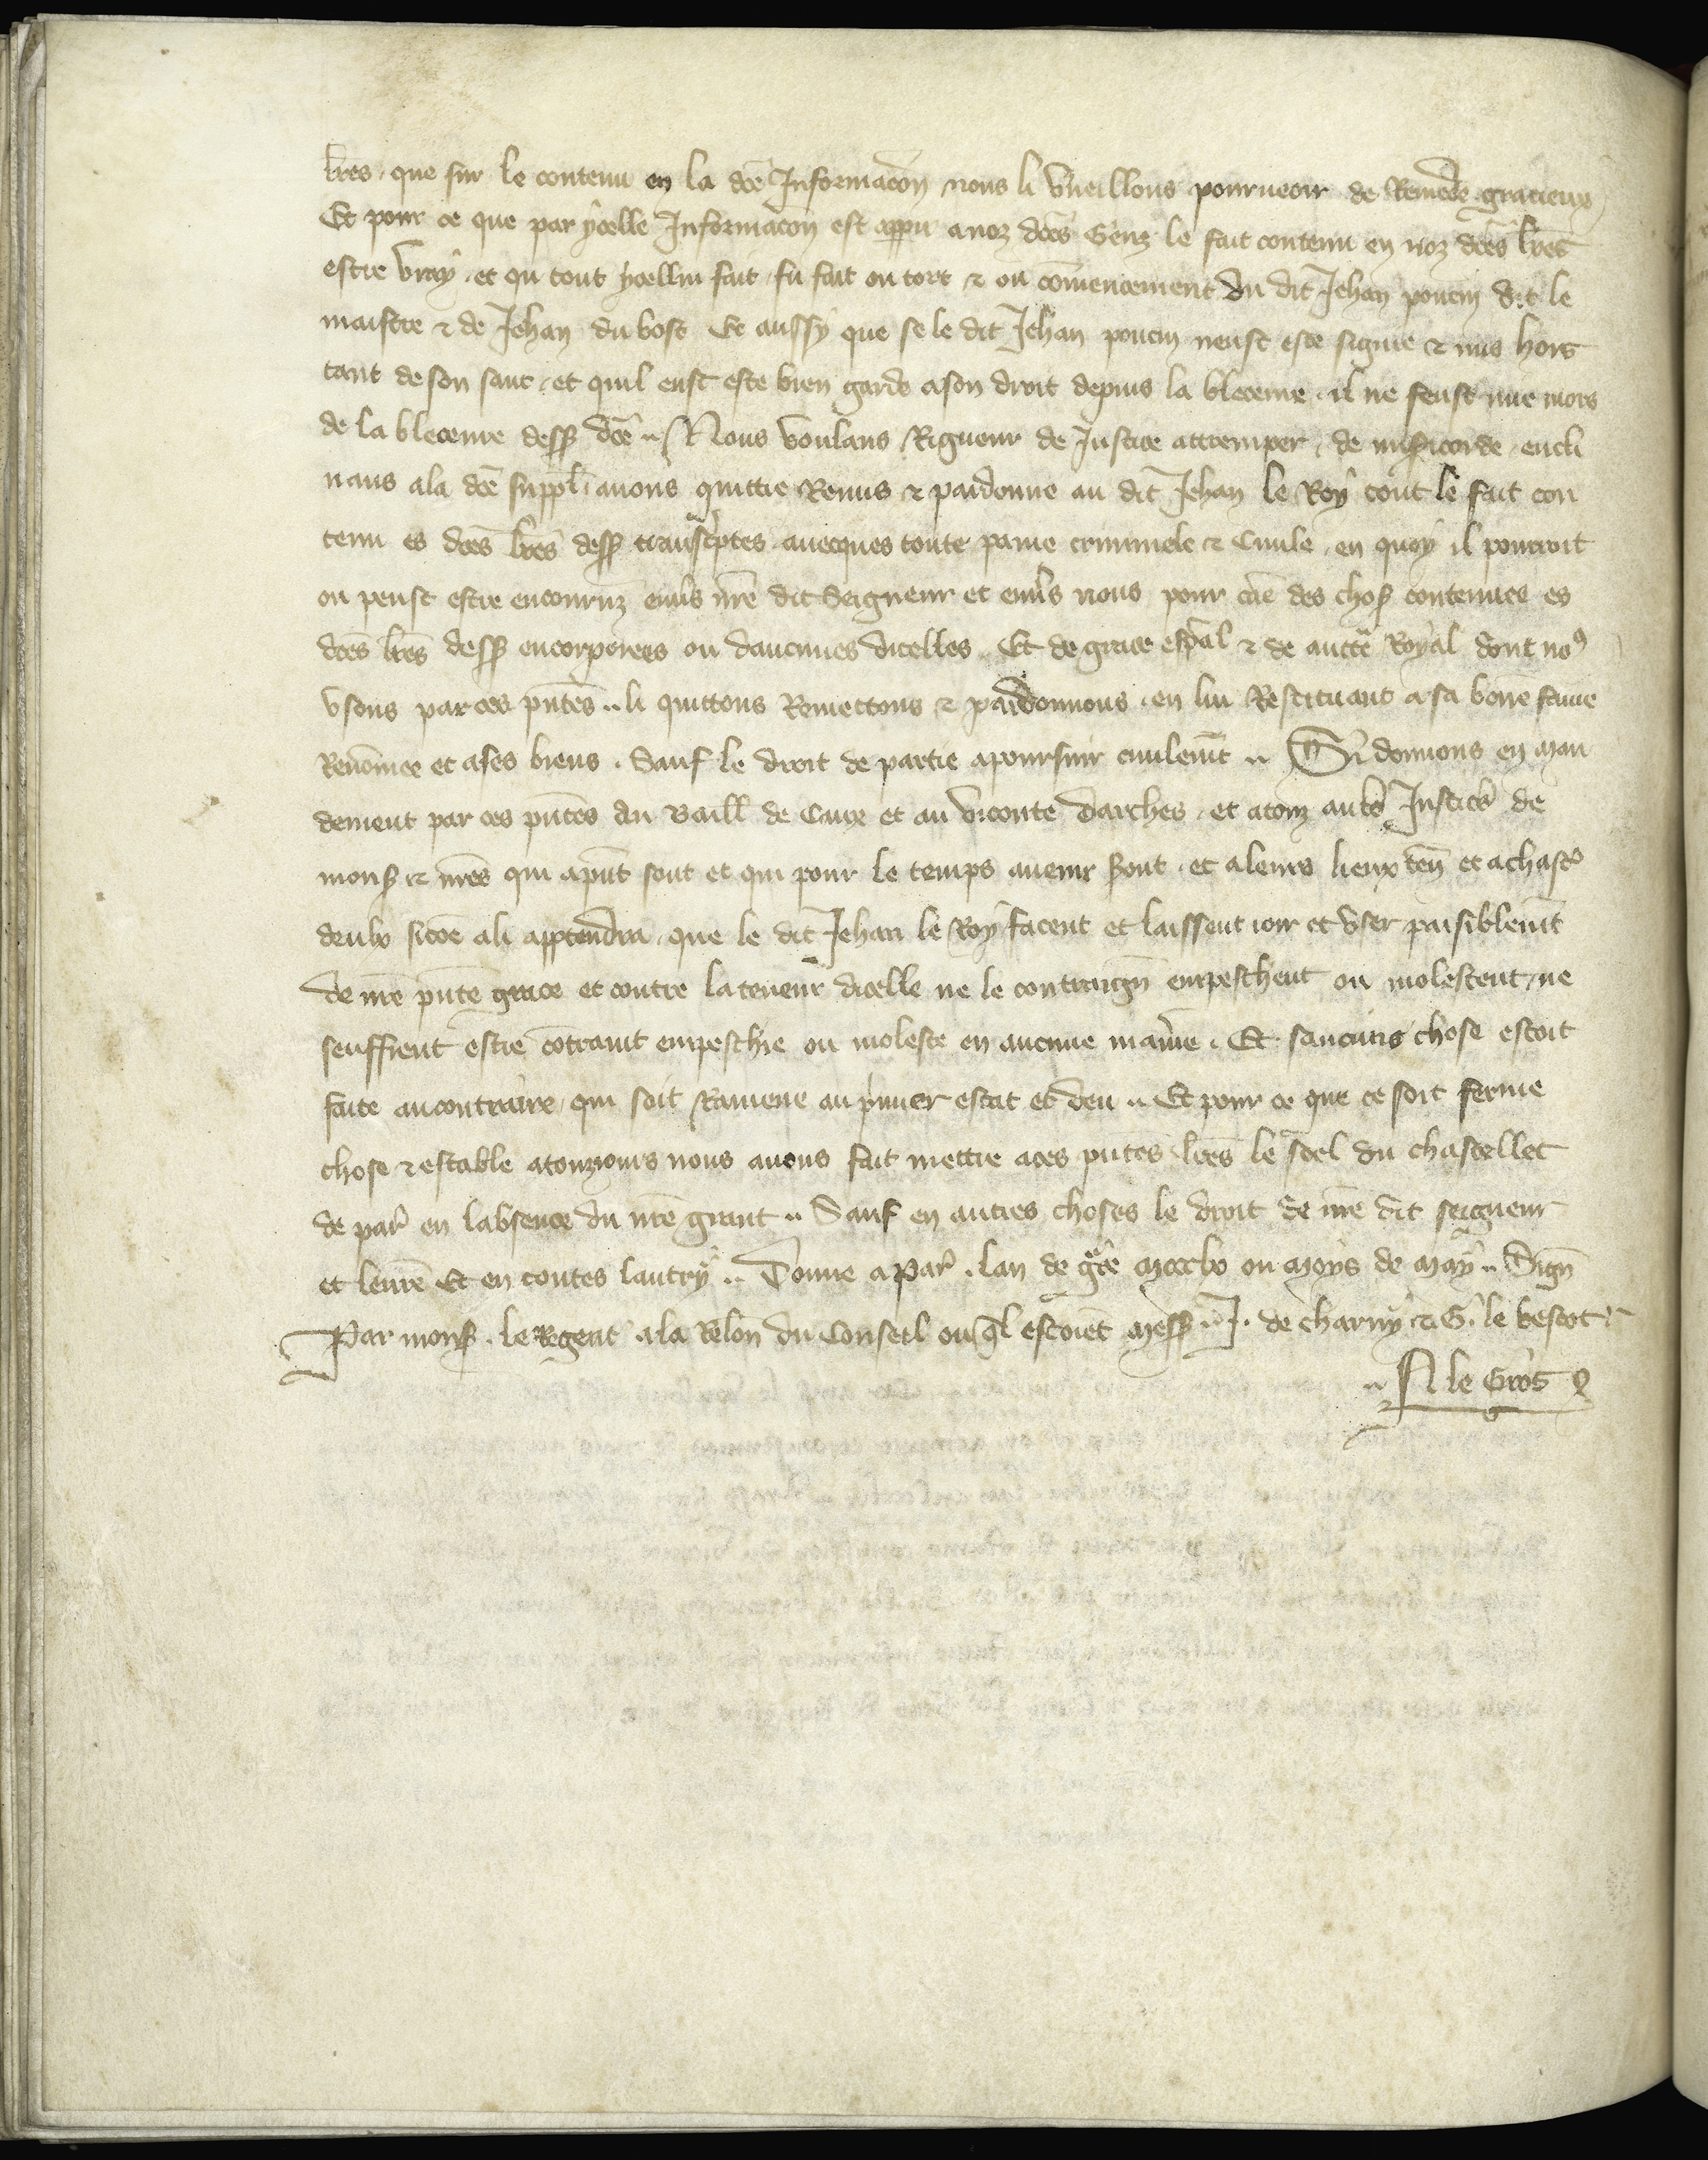 lrẽs que sur le contenu en la dcẽ Informacõn nous li vueillons pourueoir de Remede gracieux
Et pour ce que par ycelle Informacõn est apparu a noz dcẽs Genz le fait contenu en noz dcẽs lrẽs
estre vray et qu tout ycellui fait fu fait ou tort & ou cõmencement du dit Jehan poucin dit le
maistre & de Jehan du bosc Et aussy que se le dit Jehan poucin neust este signie & mis hors
tant de son sanc et quil eust este bien garde a son droit depuis la bleceure il ne feust mie mors
de la bleceure dess dcẽ Nous voulans Rigueur de Justice attremper de misericorde encli
nans a la dcẽ suppl auons quittie Remis & pardonne au dit Jehan le Roy tout le fait con
tenu es dcẽs lrẽs dess transcriptes auecques toute paine criminele & Ciuile en quoy il pourroit
ou peust estre encouruz enuers nrẽ dit Seigneur et enuers nous pour cãe des chos contenues es
dcẽs lrẽs dess encorporees ou daucunes dicelles Et de grace especial & de auctẽ Royal dont no9
vsons par ces pñtes li quittons Remettons & pardonnons en lui Restituant a sa bonẽ fame
Renõmee et a ses biens . Sauf le droit de partie a poursuir ciuilemt Si donnons en man
dement par ces pñtes au Baill de Caux et au viconte Darches et a touz autres Justices de
mons & nrẽs qui a pñt sont et qui pour le temps auenir seront et a leurs lieux teñ et a chascũ
deulx sicõe a li appartendra que le dit Jehan le Roy facent et laissent ioir et vser paisiblemt
de nrẽ pñte grace et contre la teneur dicelle ne le contraigñ empeschent ou molestent ne
seuffrent estre cõtraint empeschie ou moleste en aucune maniere . Et saucune chose estoit
faite au contraire qui soit Ramene au premier estat et deu Et pour ce que ce soit ferme
chose & estable a touzjours nous auons fait mettre a ces pñtes lrẽs le seel du chastellet
de par en labsence du nrẽ grant Sauf en autres choses le droit de nrẽ dit seigneur
et le nrẽ Et en toutes lautry Donne a Par lan de grãce M ccc lv ou Moys de May Sigñ
Par mons . le Regent a la Relon du Conseil ouquel estoiẽt mess J. de charny & G. le bescot
N le Gros